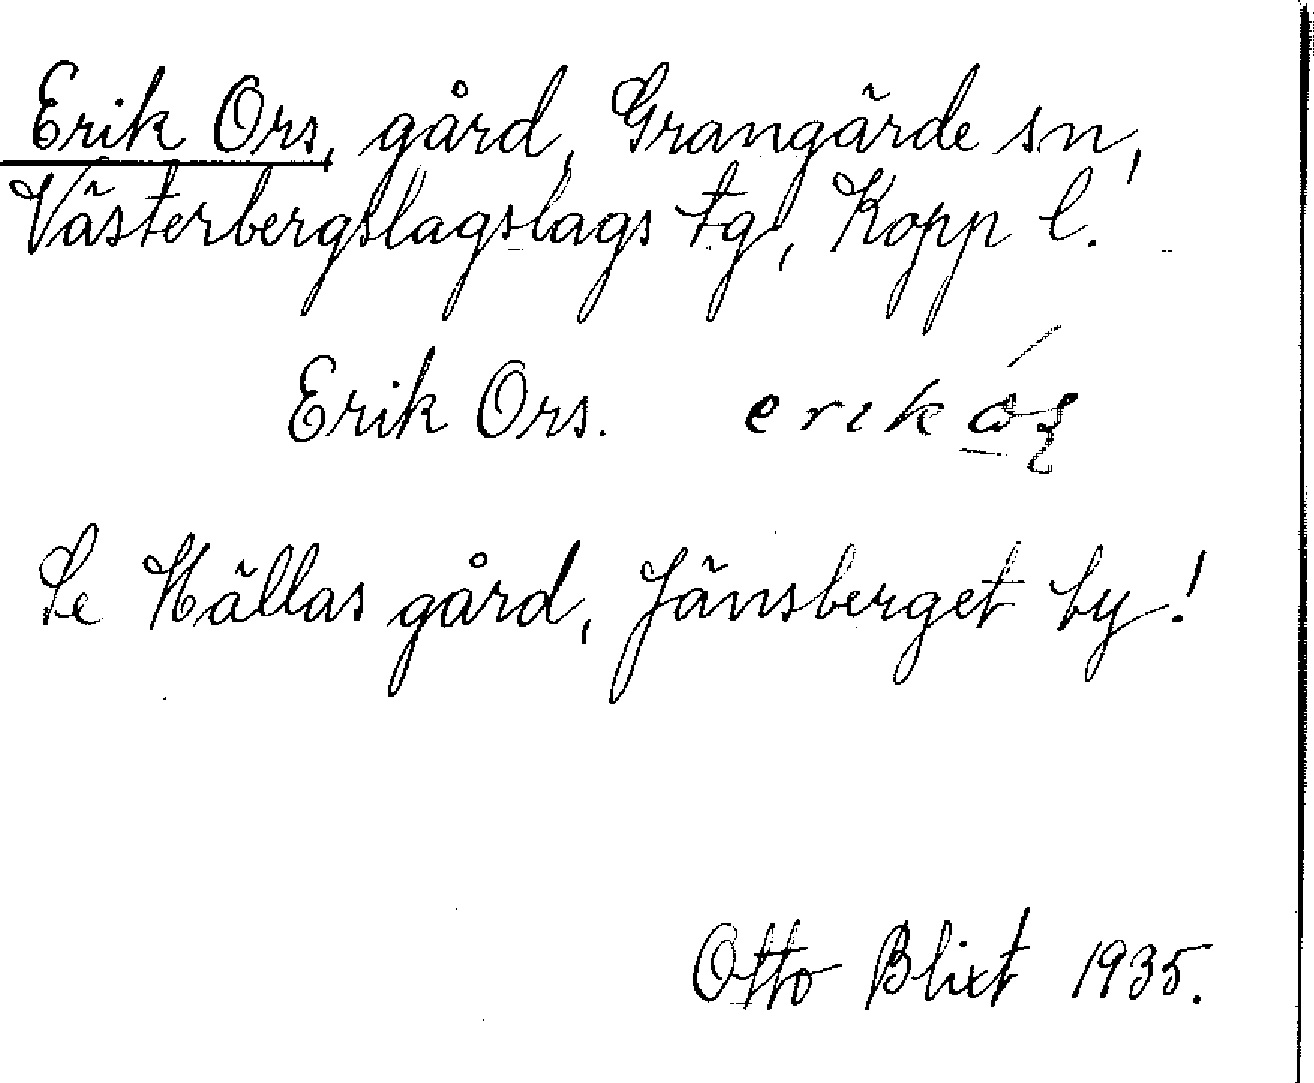 Erik Ors, gård, Grangärde sn,
Västerbergslagslags tg, Kopp l.
Erik Ors. erik
Se Hällas gård, Jänsberget by!
Otto Blixt 1935.